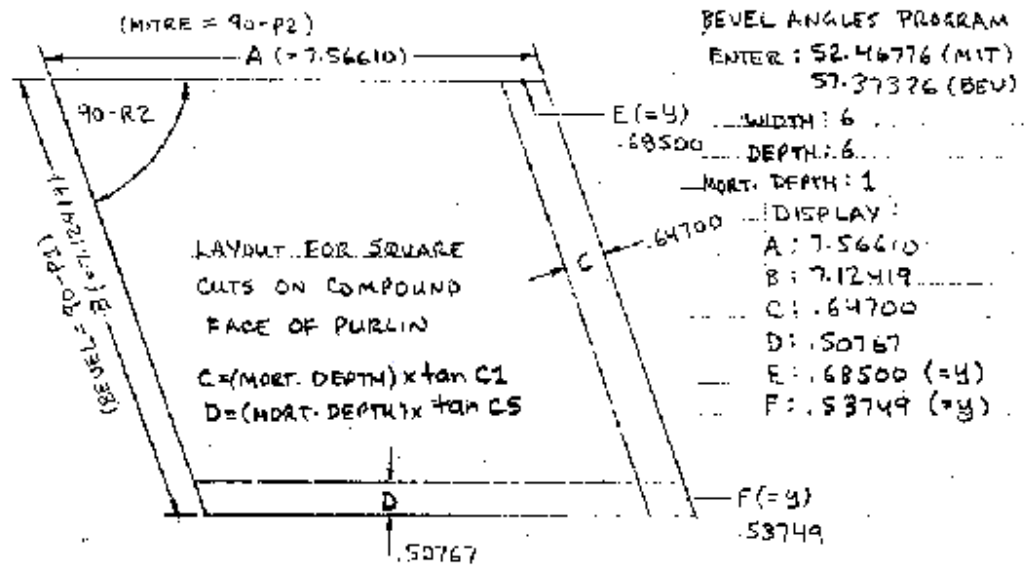 (MITRE = 90-P2)
A (= 7.56610)
90-R2
B (= 7.12419)
(BEVEL = 90-P1)
LAYOUT FOR SQUARE
CUTS ON COMPOUND
FACE OF PURLIN
C=(MORT. DEPTH) x tan C1
D=(MORT. DEPTH) x tan C5
E (=y)
.68500
.64700
C
D
.50767
F (=y)
.53749
BEVEL ANGLES PROGRAM
ENTER : 52.46776 (MIT)
57.37376 (BEV)
WIDTH : 6
DEPTH : 6
MORT. DEPTH : 1
DISPLAY :
A : 7.56610
B : 7.12419
C : .64700
D : .50767
E : .68500 (=y)
F : .53749 (=y)